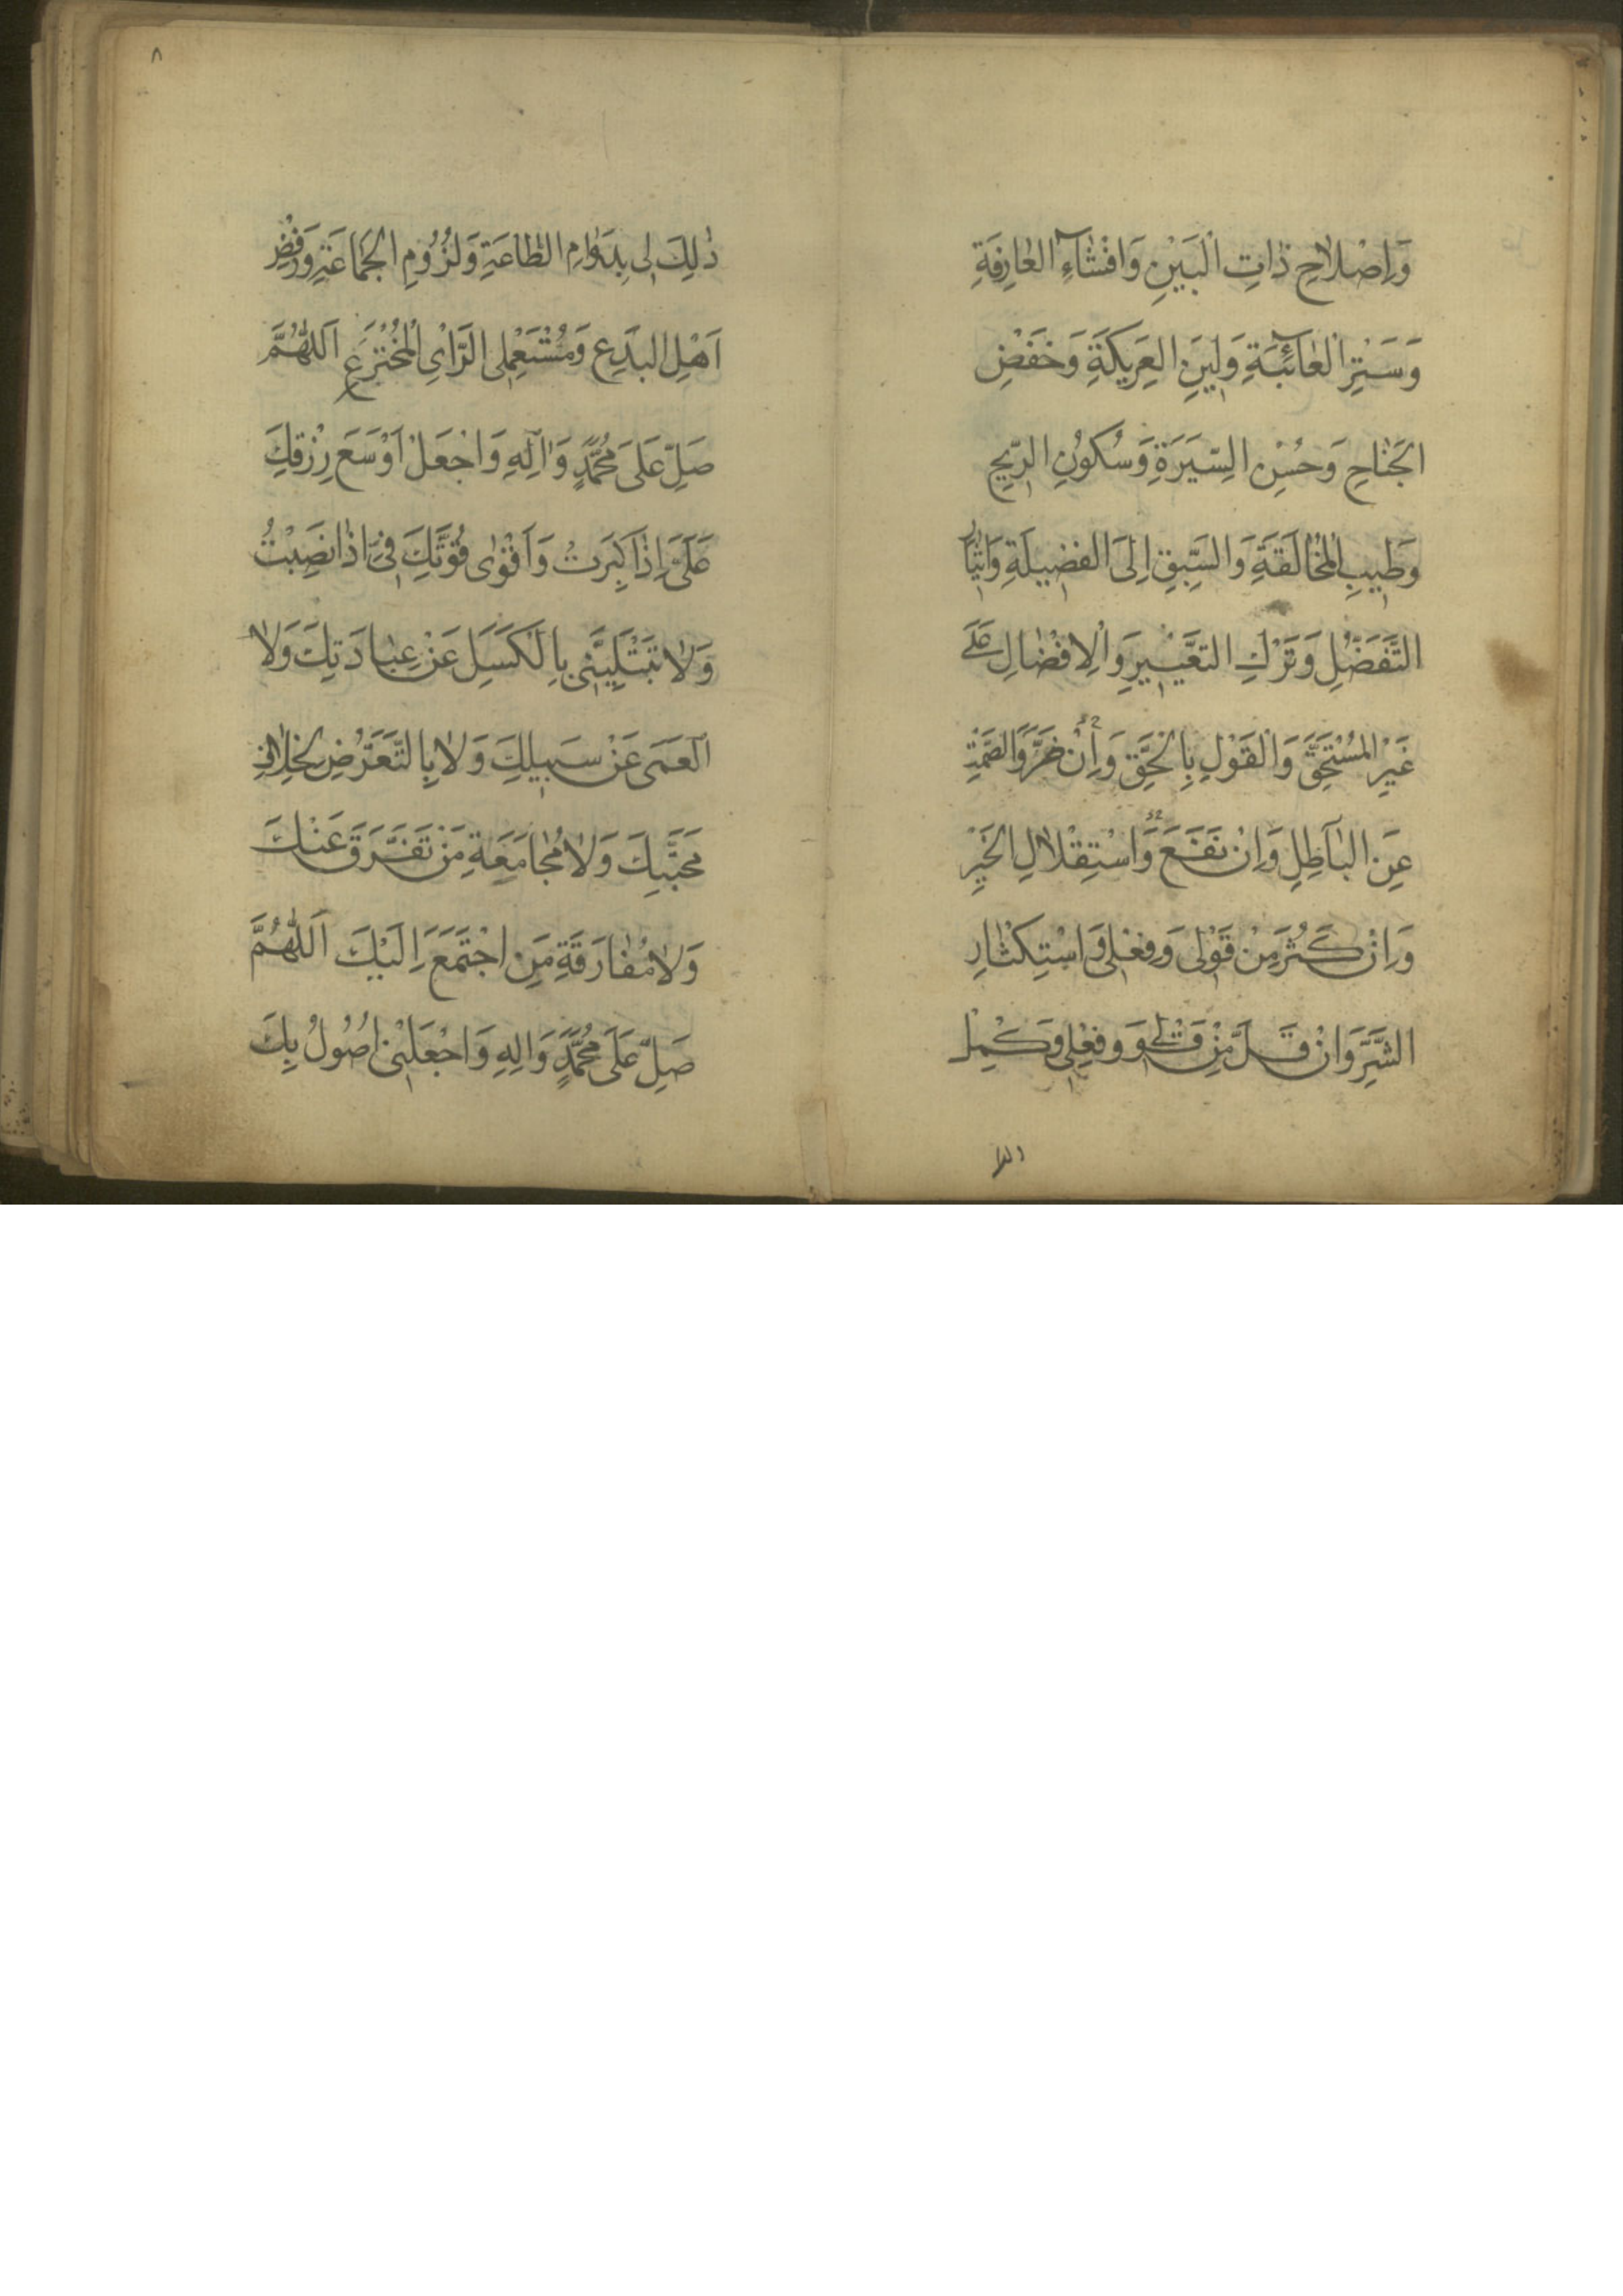 وَاِصْلاحِ ذاتِ الْبَيْنِ وَاِفْشاءِ الْعارِفَةِ
وَسَتْرِ الْعآئِبَةِ وَلِينِ الْعَرِيكَةِ وَخَفْضِ
الْجَناحِ وَحُسْنِ السِّيَرَةِ وَسُكُونِ الرّيحِ
وَطِيبِ الْمُخالَقَةِ وَالسَّبِقِ اِلَى الْفَضِيلَةِ وَايثارِ
التَّفَضُّلِ وَتَرْكِ التَّعْيِيرِ وَالْاِفْضالِ عَلَى
غَيْرِ الْمُسْتَحِقِّ وَالْقَوْلِ بِالْحَقِّ وَاِنْ ضَرَّ وَالصَّمْتِ
عَنِ الْباطِلِ وَاِنْ نَفَعَ وَاسْتِقْلالِ الْخَيْرِ
وَاِنْ كَثُرَ مِنْ قَوْلى وَفِعْلى وَاسْتِكْثارِ
الشَّرِّ وَاِنْ قَلَّ مِنْ قَوْلى وَفِعْلى وَكَمِّلْ
٨
ذلِكَ لى بِدَوامِ الطّاعَةِ وَلُزُومِ الْجَماعَةِ وَرَفْضِ
اَهْلِ الْبِدَعِ وَمُسْتَعْمِلى الرَّأىِ الْمُخْتَرَعِ اَللّهُمَّ
صَلِّ عَلى مُحَمَّدٍ وَآلِهِ وَاجْعَلْ اَوْسَعَ رِزْقِكَ
عَلَىَّ اِذا كَبِرَتُ وَاَقْوى قُوَّتِكَ فِىَّ اِذا نَصِبْتُ
وَلا تَبْتَلِيَنّى بِالْكَسَلِ عَنْ عِبادَتِكَ وَلا
الْعَمى عَنْ سَبِيلِكَ وَلا بِالتَّعَرُّضِ لِخِلافِ
مَحَبَّتِكَ وَلا مُجامَعَةِ مَنْ تَفَرَّقَ عَنْكَ
وَلا مُفارَقَةِ مَنِ اجْتَمَعَ اِلَيْكَ اَللّهُمَّ
صَلِّ عَلى مُحَمَّدٍ وَالِهِ وَاجْعَلْنى اَصُولُ بِكَ